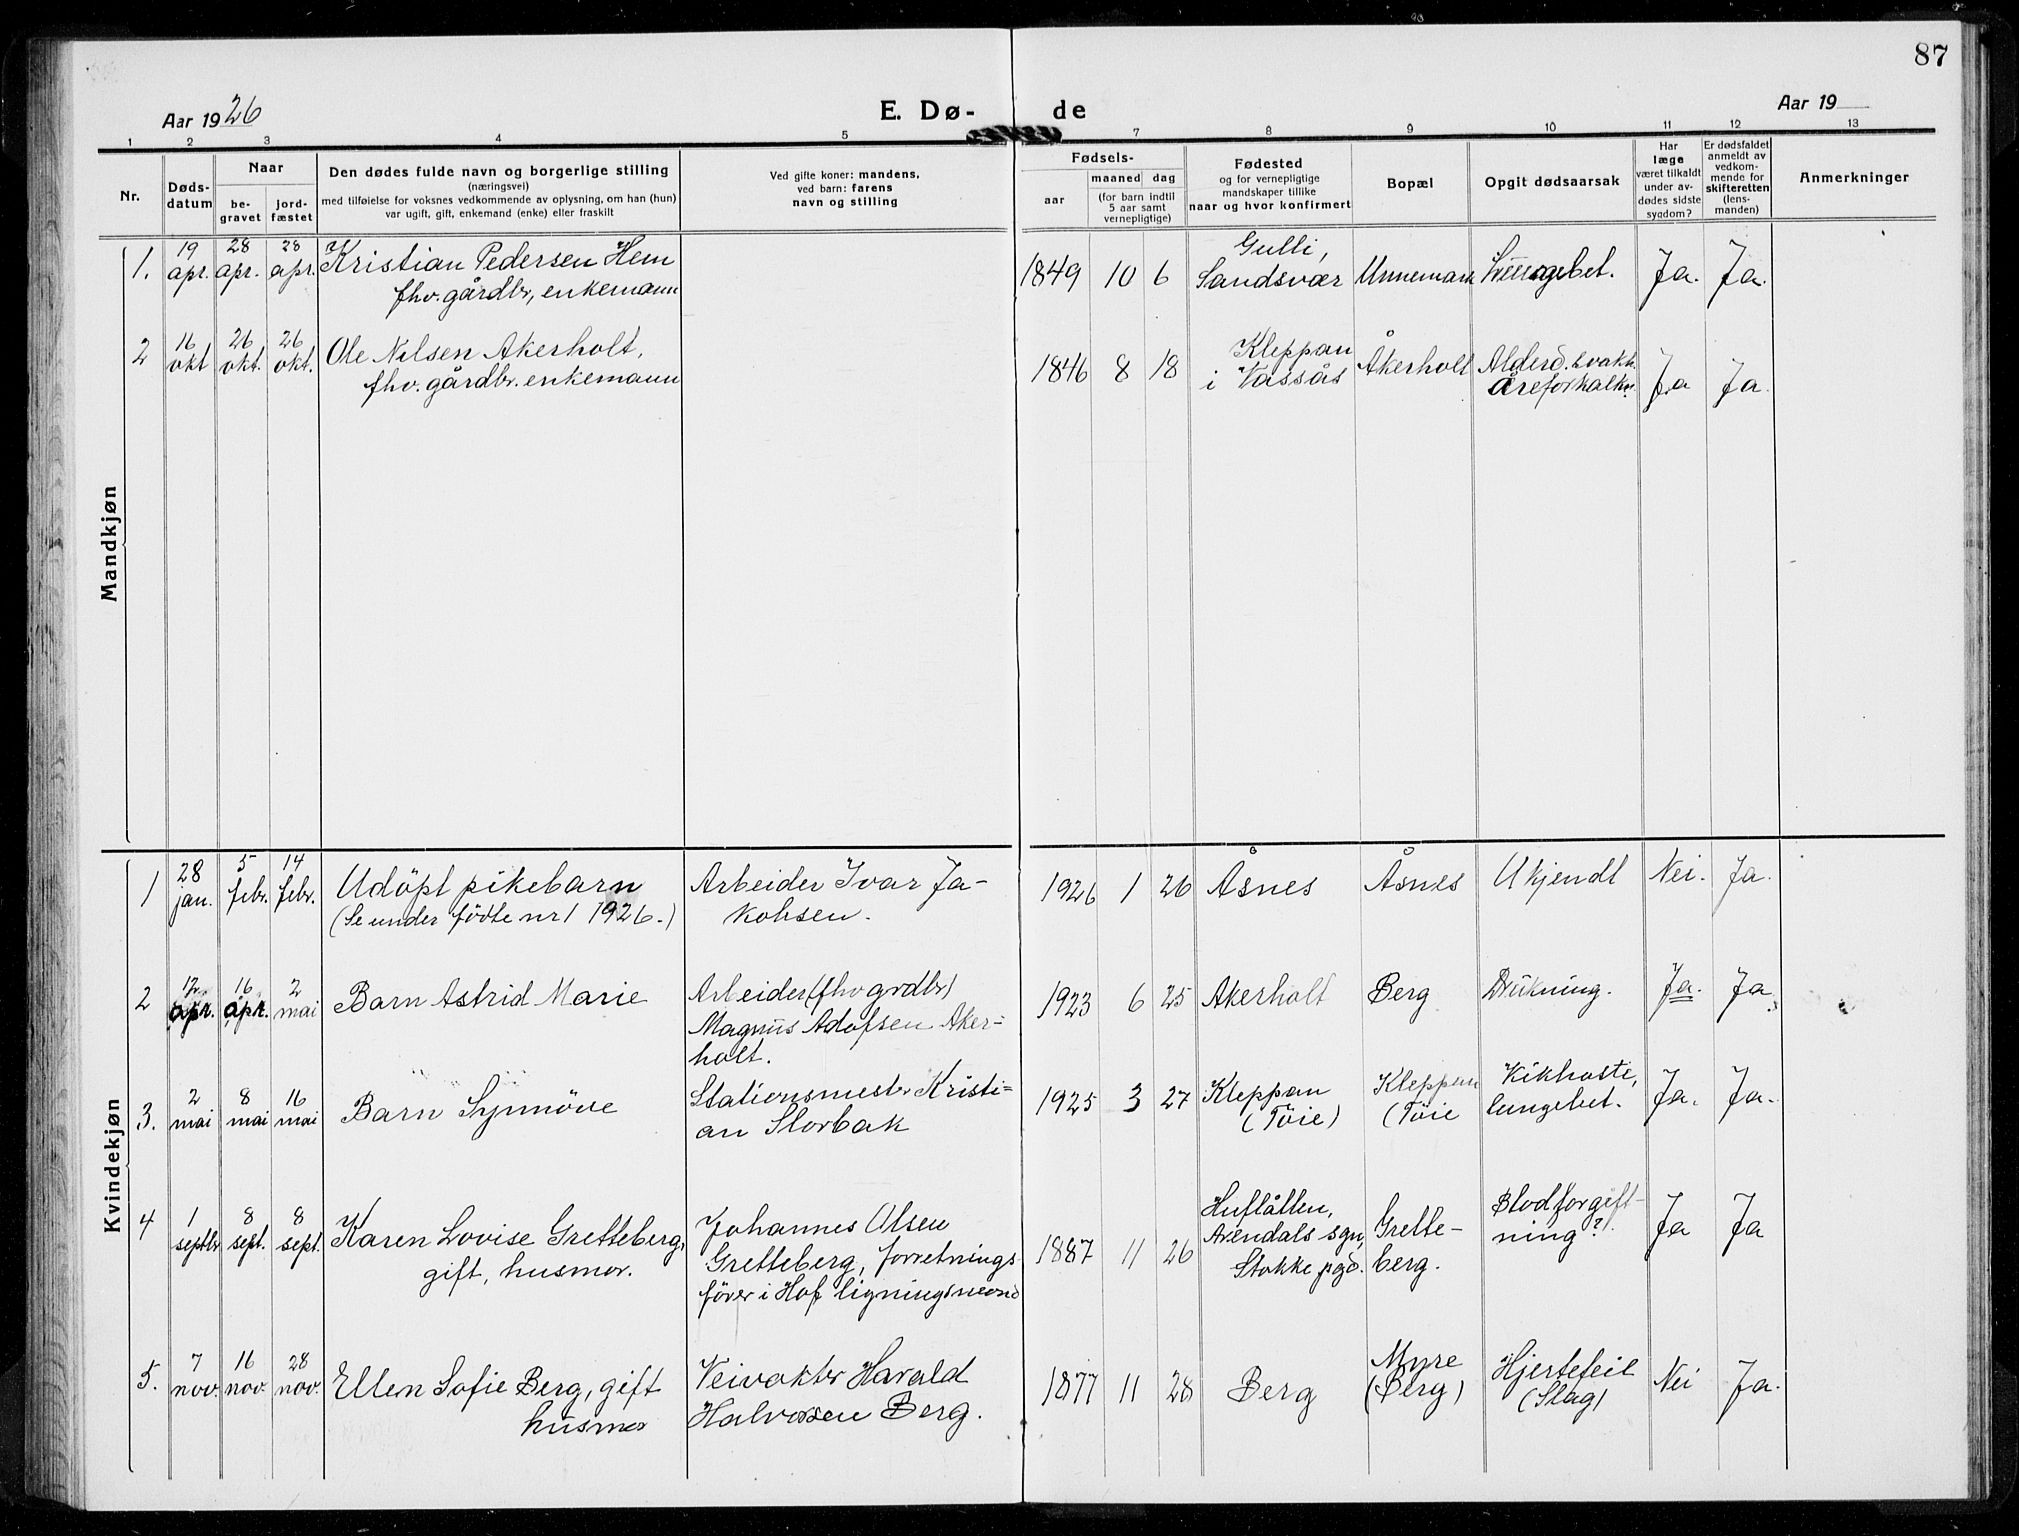 87
Aar 1926
E. Dø-
de
Aar 19
1 2 3 4 5 7 8 9 10 11 12 13
Nr.
Døds-
datum
Naar
be-
gravet
jord-
fæstet
Den dødes fulde navn og borgerlige stilling
(næringsvei)
med tilføielse for voksnes vedkommende av oplysning, om han (hun)
var ugift, gift, enkemand (enke) eller fraskilt
Ved gifte koner: mandens,
ved barn: farens
navn og stilling
Fødsels-
aar
maaned dag
(for barn indtil
5 aar samt
vernepligtige)
Fødested
og for vernepligtige
mandskaper tillike
naar og hvor konfirmert
Bopæl
Opgit dødsaarsak
Har
læge
været tilkaldt
under av-
dødes sidste
sygdom?
Er dødsfaldet
anmeldt av
vedkom-
mende for
skifteretten
(lens-
manden)
Anmerkninger
Mandkjøn
1. 19 apr. 28 apr. 28 apr. Kristian Pedersen Hem
fhv. gårdbr, enkemann
1849 10 6 Gulli,
Sandsvær Unnemark Ja. Ja.
2 16 okt 26 okt. 26 okt. Ole Nilsen Akerholt,
fhv. gårdbr. enkemann
1846 8 18 Kleppan
i Vassås Åkerholt Alderd. svakh.
Åreforkalkn. Ja Ja.
Kvindekjøn
1 28 jan. 5 febr. 14 febr. Udöpt pikebarn
(Se under födte nr 1 1926.)
Arbeider Ivar Ja-
kobsen.
1926 1 26 Åsnes Åsnes Ukjendt Nei. Ja.
2 12 apr. 16 apr. 2 mai Barn Astrid Marie
Arbeider (fhv grdbr)
Magnus Adofsen Aker-
holt.
1923 6 25 Akerholt Berg Drukning. Ja. Ja.
3. 2 mai 8 mai 16 mai Barn Synnöve
Stationsmester Kristi-
an Storbak
1925 3 27 Kleppan
(Töie) Kleppan
(Töie Kikhoste,
lungebet. Ja. Ja.
4 1 septbr 8 sept. 8 sept. Karen Lovise Gretteberg,
gift, husmor.
Johannes Olsen
Gretteberg, forretnings
förer i Hof ligningsnevnd
1887 11 26
Arendals sgn,
Stokke pgd. Grette-
berg. Blodforgift-
ning?. Ja Ja
5. 7 nov. 16 nov. 28 nov. Ellen Sofie Berg, gift
husmor
Veivokter Harald
Halvorsen Berg.
1877 11 28 Berg Myre
(Berg) Hjertefeil
(Slag) Nei Ja.